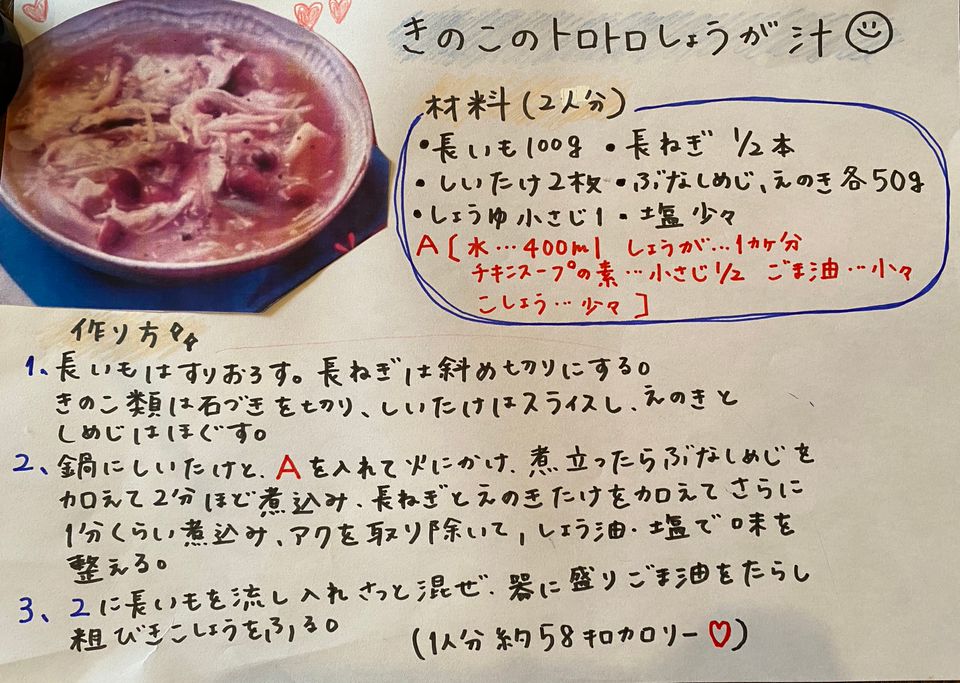 きのこのトロトロしょうが汁
材料(2人分)
・長いも100g ・長ねぎ 1/2本
・しいたけ2枚 ・ぶなしめじ、えのき各50g
・しょうゆ小さじ1 ・塩少々
A[水…400ml しょうが…1カケ分
チキンスープの素…小さじ1/2 ごま油…少々
こしょう…少々]
作り方
1、長いもはすりおろす。長ねぎは斜め切りにする。
きのこ類は石づきを切り、しいたけはスライスし、えのきと
しめじはほぐす。
2、鍋にしいたけと、Aを入れて火にかけ、煮立ったらぶなしめじを
加えて2分ほど煮込み、長ねぎとえのきたけを加えてさらに
1分くらい煮込み、アクを取り除いて、しょう油・塩で味を
整える。
3、2に長いもを流し入れさっと混ぜ、器に盛りごま油をたらし
粗びきこしょうをふる。
(1人分約58キロカロリー♡)